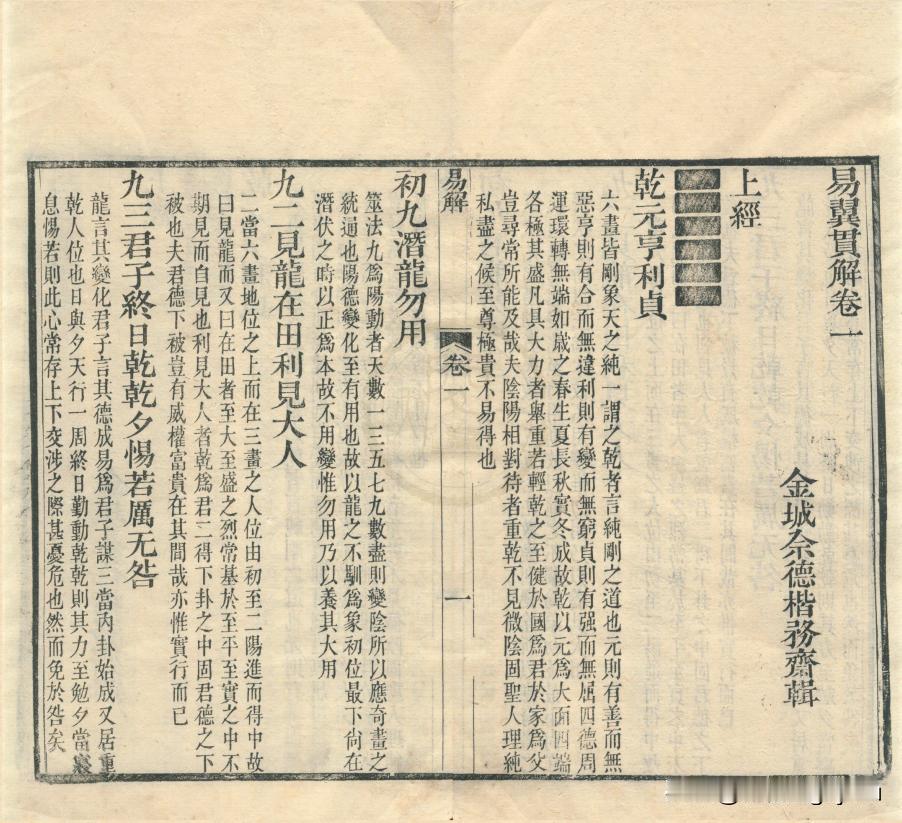 易翼貫解卷一
金城佘德楷務齋輯
上經
乾元亨利貞
六畫皆剛象天之純一謂之乾者言純剛之道也元則有善而無
惡亨則有合而無違利則有變而無窮貞則有强而無屈四德周
運環轉無端如歲之春生夏長秋實冬成故乾以元爲大而四端
各極其盛凡具大力者舉重若輕乾之至健於國爲君於家爲父
豈尋常所能及哉夫陰陽相對待者重乾不見微陰固聖人理純
私盡之候至尊極貴不易得也
易解
卷一
一
初九潛龍勿用
筮法九爲陽動者天數一三五七九數盡則變陰所以應奇畫之
統遍也陽德變化至有用也故以龍之不馴爲象初位最下尙在
潛伏之時以正爲本故不用變惟勿用乃以養其大用
九二見龍在田利見大人
二當六畫地位之上而在三畫之人位由初至二陽進而得中故
曰見龍而又曰在田者至大至盛之烈常基於至平至實之中不
期見而自見也利見大人者乾爲君二得下卦之中固君德之下
被也夫君德下被豈有威權富貴在其間哉亦惟實行而已
九三君子終日乾乾夕惕若厲无咎
龍言其變化君子言其德成易爲君子謀三當內卦始成又居重
乾人位也日與夕天行一周終日勤動乾乾則其力至勉夕當
息惕若則此心常存上下交涉之際甚憂危也然而免於咎矣